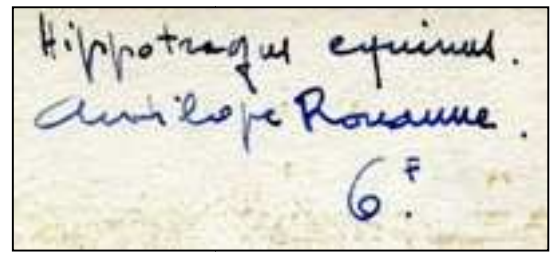 Hippotragus equinus.
Antilope Rouanne.
6F.